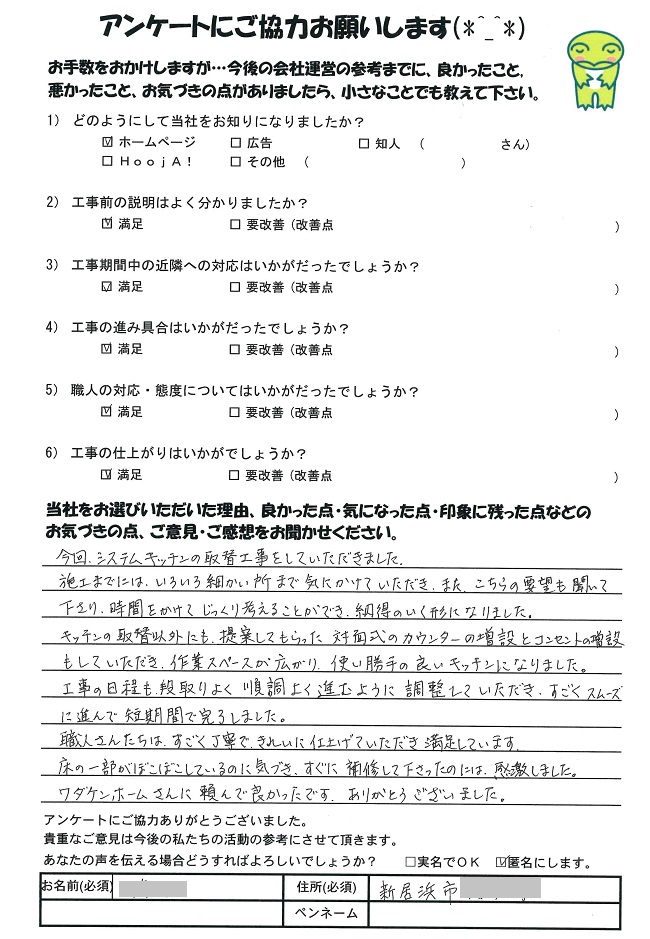 アンケートにご協力お願いします(*^_^*)
お手数をおかけしますが…今後の会社運営の参考までに、良かったこと、
悪かったこと、お気づきの点がありましたら、小さなことでも教えて下さい。
1) どのようにして当社をお知りになりましたか?
☑ ホームページ □ 広告 □ 知人 ( さん)
□ HoojA! □ その他 ( )
2) 工事前の説明はよく分かりましたか?
☑ 満足 □ 要改善(改善点 )
3) 工事期間中の近隣への対応はいかがだったでしょうか?
☑ 満足 □ 要改善(改善点 )
4) 工事の進み具合はいかがだったでしょうか?
☑ 満足 □ 要改善(改善点 )
5) 職人の対応・態度についてはいかがだったでしょうか?
☑ 満足 □ 要改善(改善点 )
6) 工事の仕上がりはいかがでしょうか?
☑ 満足 □ 要改善(改善点 )
当社をお選びいただいた理由、良かった点・気になった点・印象に残った点などの
お気づきの点、ご意見・ご感想をお聞かせください。
今回、システムキッチンの取替工事をしていただきました。
施工までには、いろいろ細かい所まで気にかけていただき、また、こちらの要望も聞いて
下さり、時間をかけてじっくり考えることができ、納得のいく形になりました。
キッチンの取替以外にも、提案してもらった対面式のカウンターの増設とコンセントの増設
もしていただき、作業スペースが広がり、使い勝手の良いキッチンになりました。
工事の日程も、段取りよく順調よく進むように調整していただき、すごくスムーズ
に進んで短期間で完了しました。
職人さんたちは、すごく丁寧で、きれいに仕上げていただき満足しています。
床の一部がぼこぼこしているのに気づき、すぐに補修して下さったのには、感激しました。
ワダケンホームさんに頼んで良かったです。ありがとうございました。
アンケートにご協力ありがとうございました。
貴重なご意見は今後の私たちの活動の参考にさせて頂きます。
あなたの声を伝える場合どうすればよろしいでしょうか? □実名でOK ☑匿名にします。
お名前(必須) 住所(必須) 新居浜市
ペンネーム